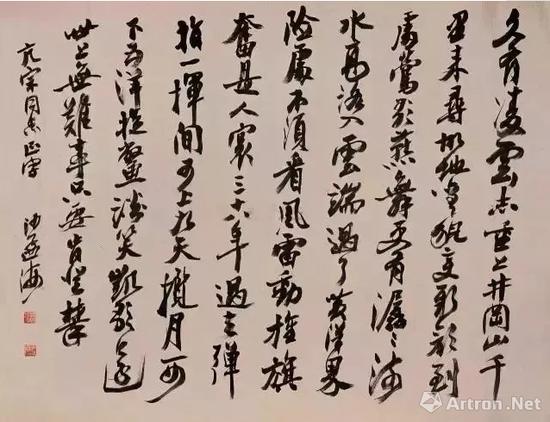 久有凌雲志重上井岡山千
里来尋故地舊貌变新顔到
處鶯歌燕舞更有潺〻流
水高路入雲端過了黄洋界
险處不須看風雷動旌旗
奮是人寰三十八年過去弹
指一揮間可上九天攬月可
下五洋捉鱉談笑凱歌還
世上無難事只要肯登攀
同志正字 沙孟海
Artron.Net